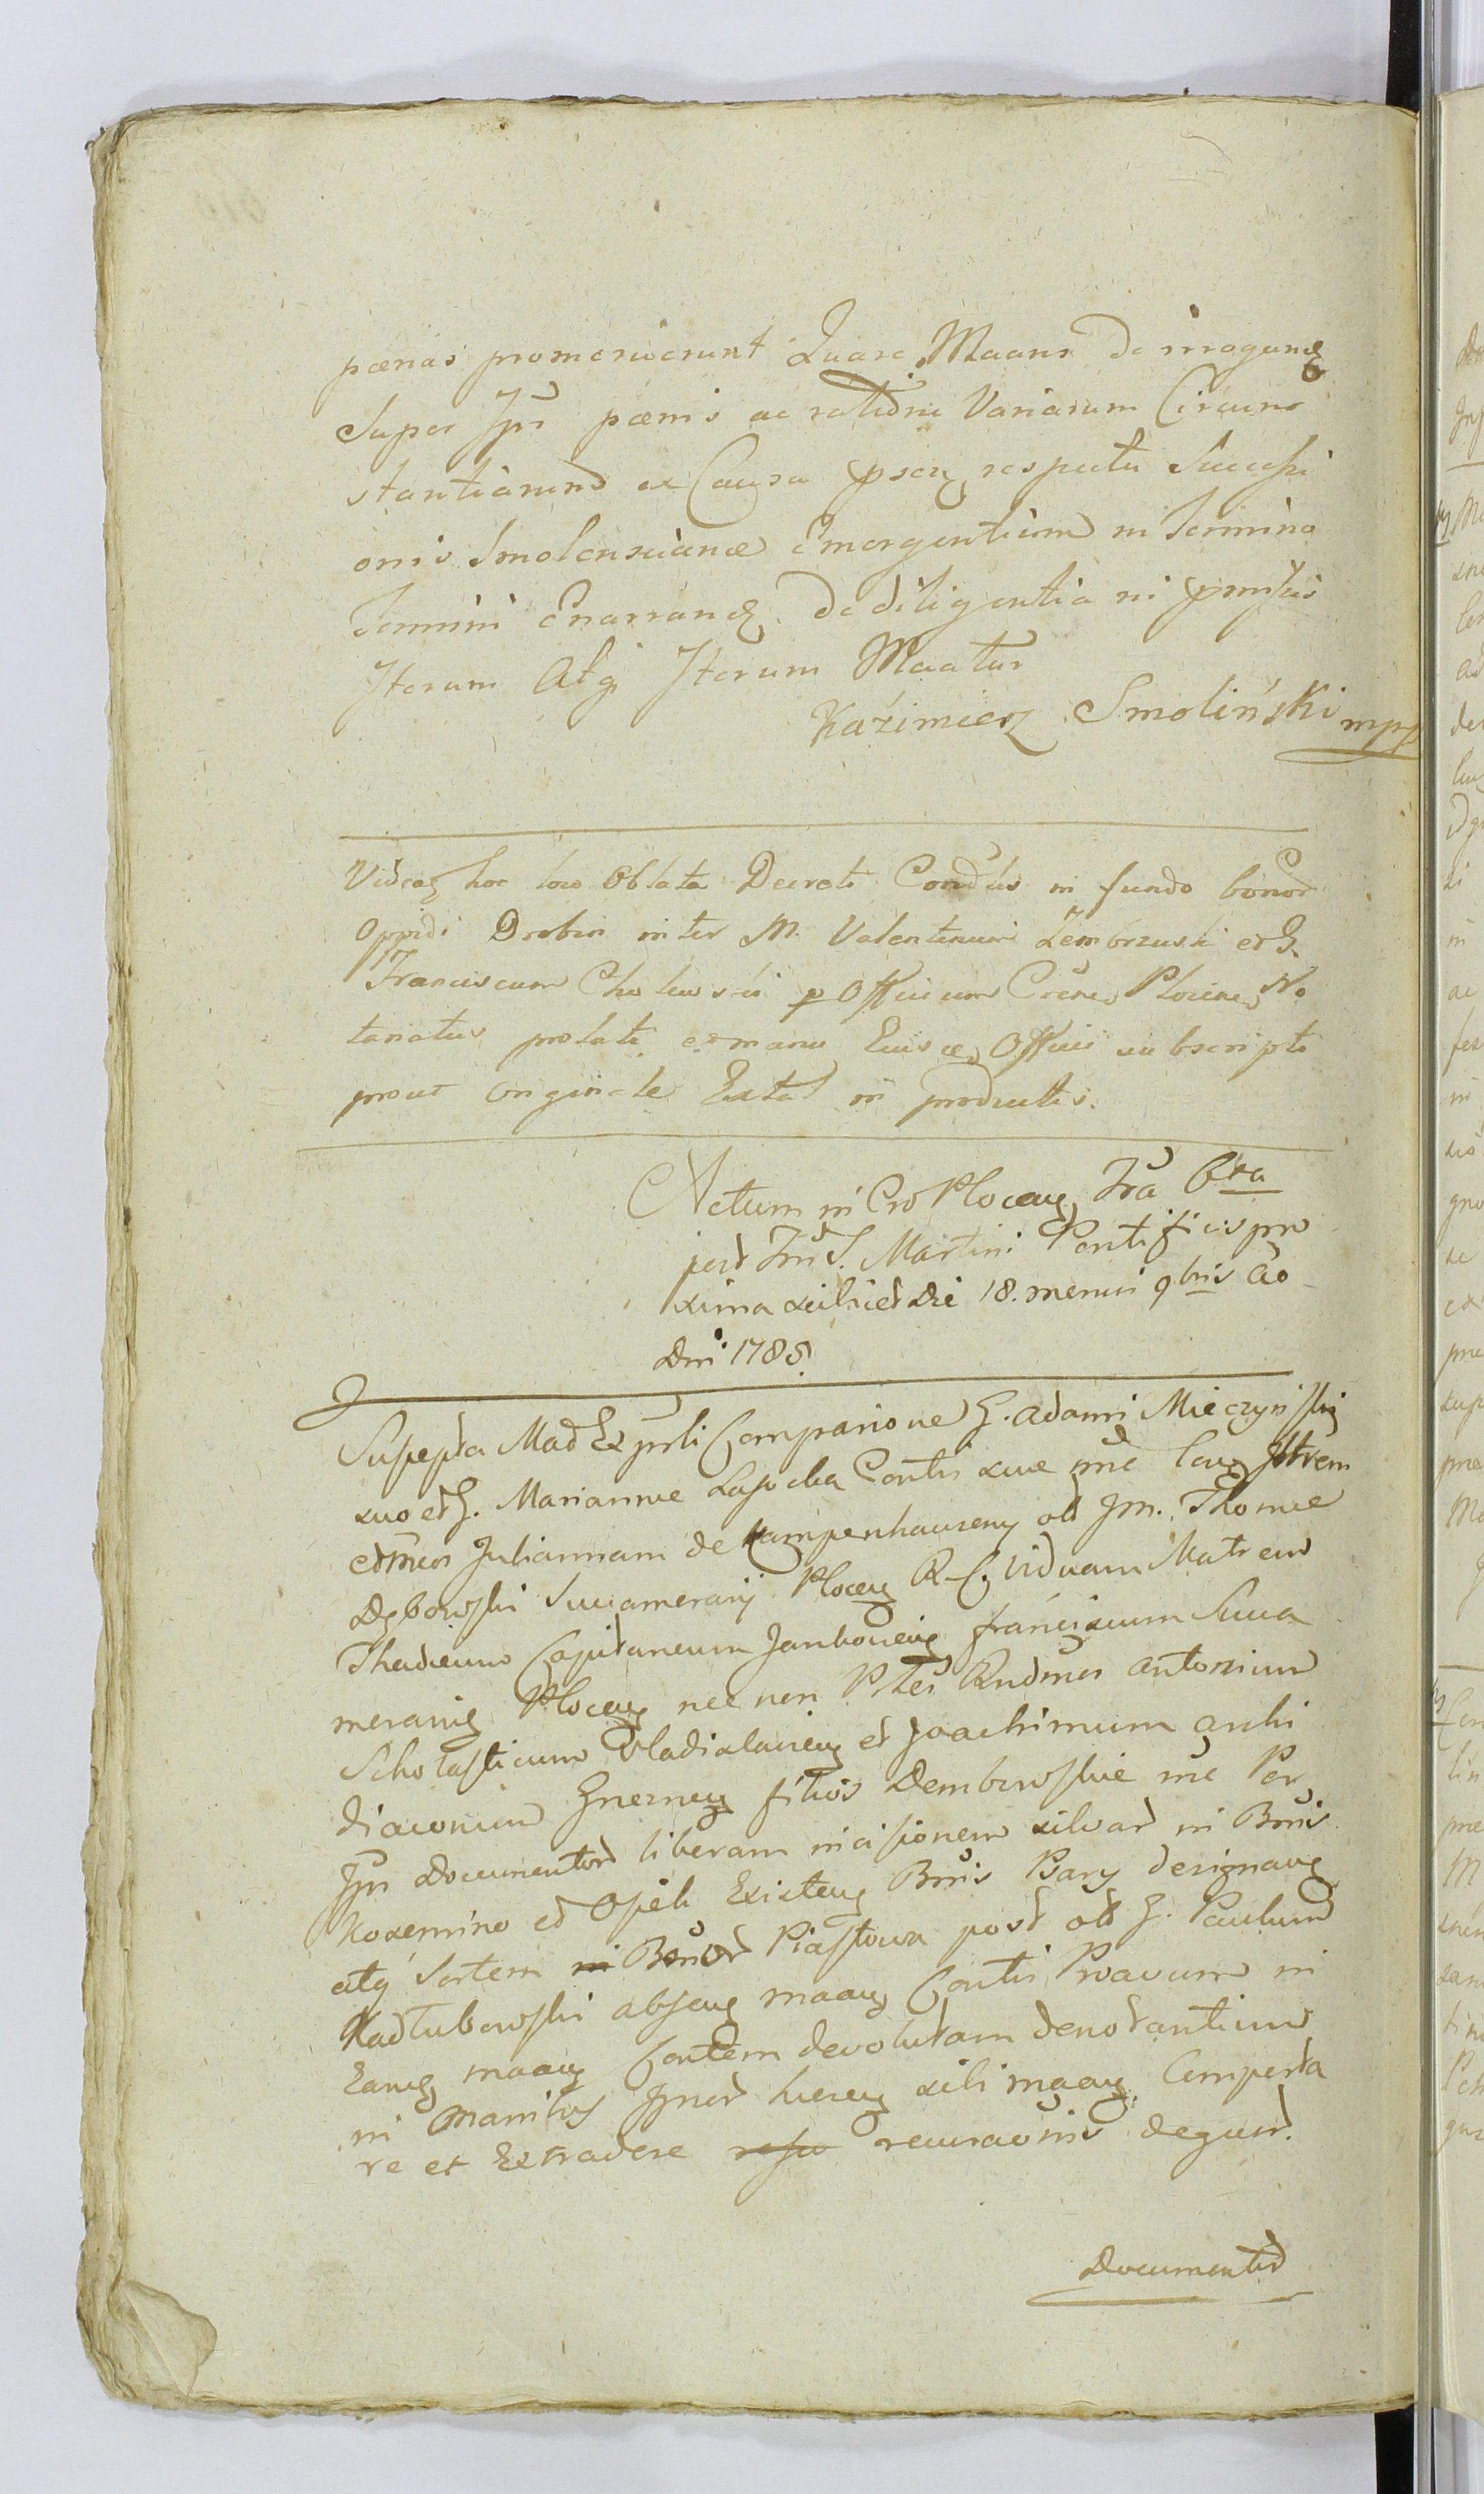 pœnas promeruerunt Quare Maans De irrogang
Super Jpr pœnis ac ratidne Variarum Circum
stantiarumd ex Causa respectu Successi
onis Smolenscianæ Emergentium in Termino
Termini Enarrang. De diligentia in pmissis
Iterum Atq Iterum Maatur
Kaźimierz Smoliński mpp
Videag hoc loco Oblata Decreti Condls in fundo bonor
Oppidi Drobin inter M. Valentinum Zembrzuski et G.
Franciscum Cholewski p Officium Crene Plocene No
tariatus prolati et manu Eius Officii subscripti
prout originale Extat in productis.
Actum in Cro Ploceng Fra 6ta
post Fm S. Martini Pontificis pro
xima scilicet Die 18. mensis 9bris Ao
Dni 1785.
Supepta Mad Ex prti Comparione G. Adami Mieczyński
suo et G. Mariannæ Lasocka Contis suæ nne
Juliannam de Kampenhauseny olt Jm. Thomæ
Dębowski Succamerarij Ploceng R-C. Viduam Matrem
Thadeum Capitaneum Janboueng franciscum Succa
merarig Ploceng nec non Prtes Rndmos Antonium
Scholasticum Vladislauieng et Joachimum Archi
diaconum Gnezneng filios Dembowskie nne Per
Jpr Documentor liberam incisionem silvar in Bonis
Koxemino et Opeli Existeng Bonis Psary designang
atq Sortem in Bonor Piastowa post olt G. Paulum
Kadłubowski abseng maang Contis Pravum in
Eang maang Contem devolutam denotantium
in Manibus Jpnor hucusq sibi maang. Comporta
re et Extradere recuraonis degunt.
Documentor